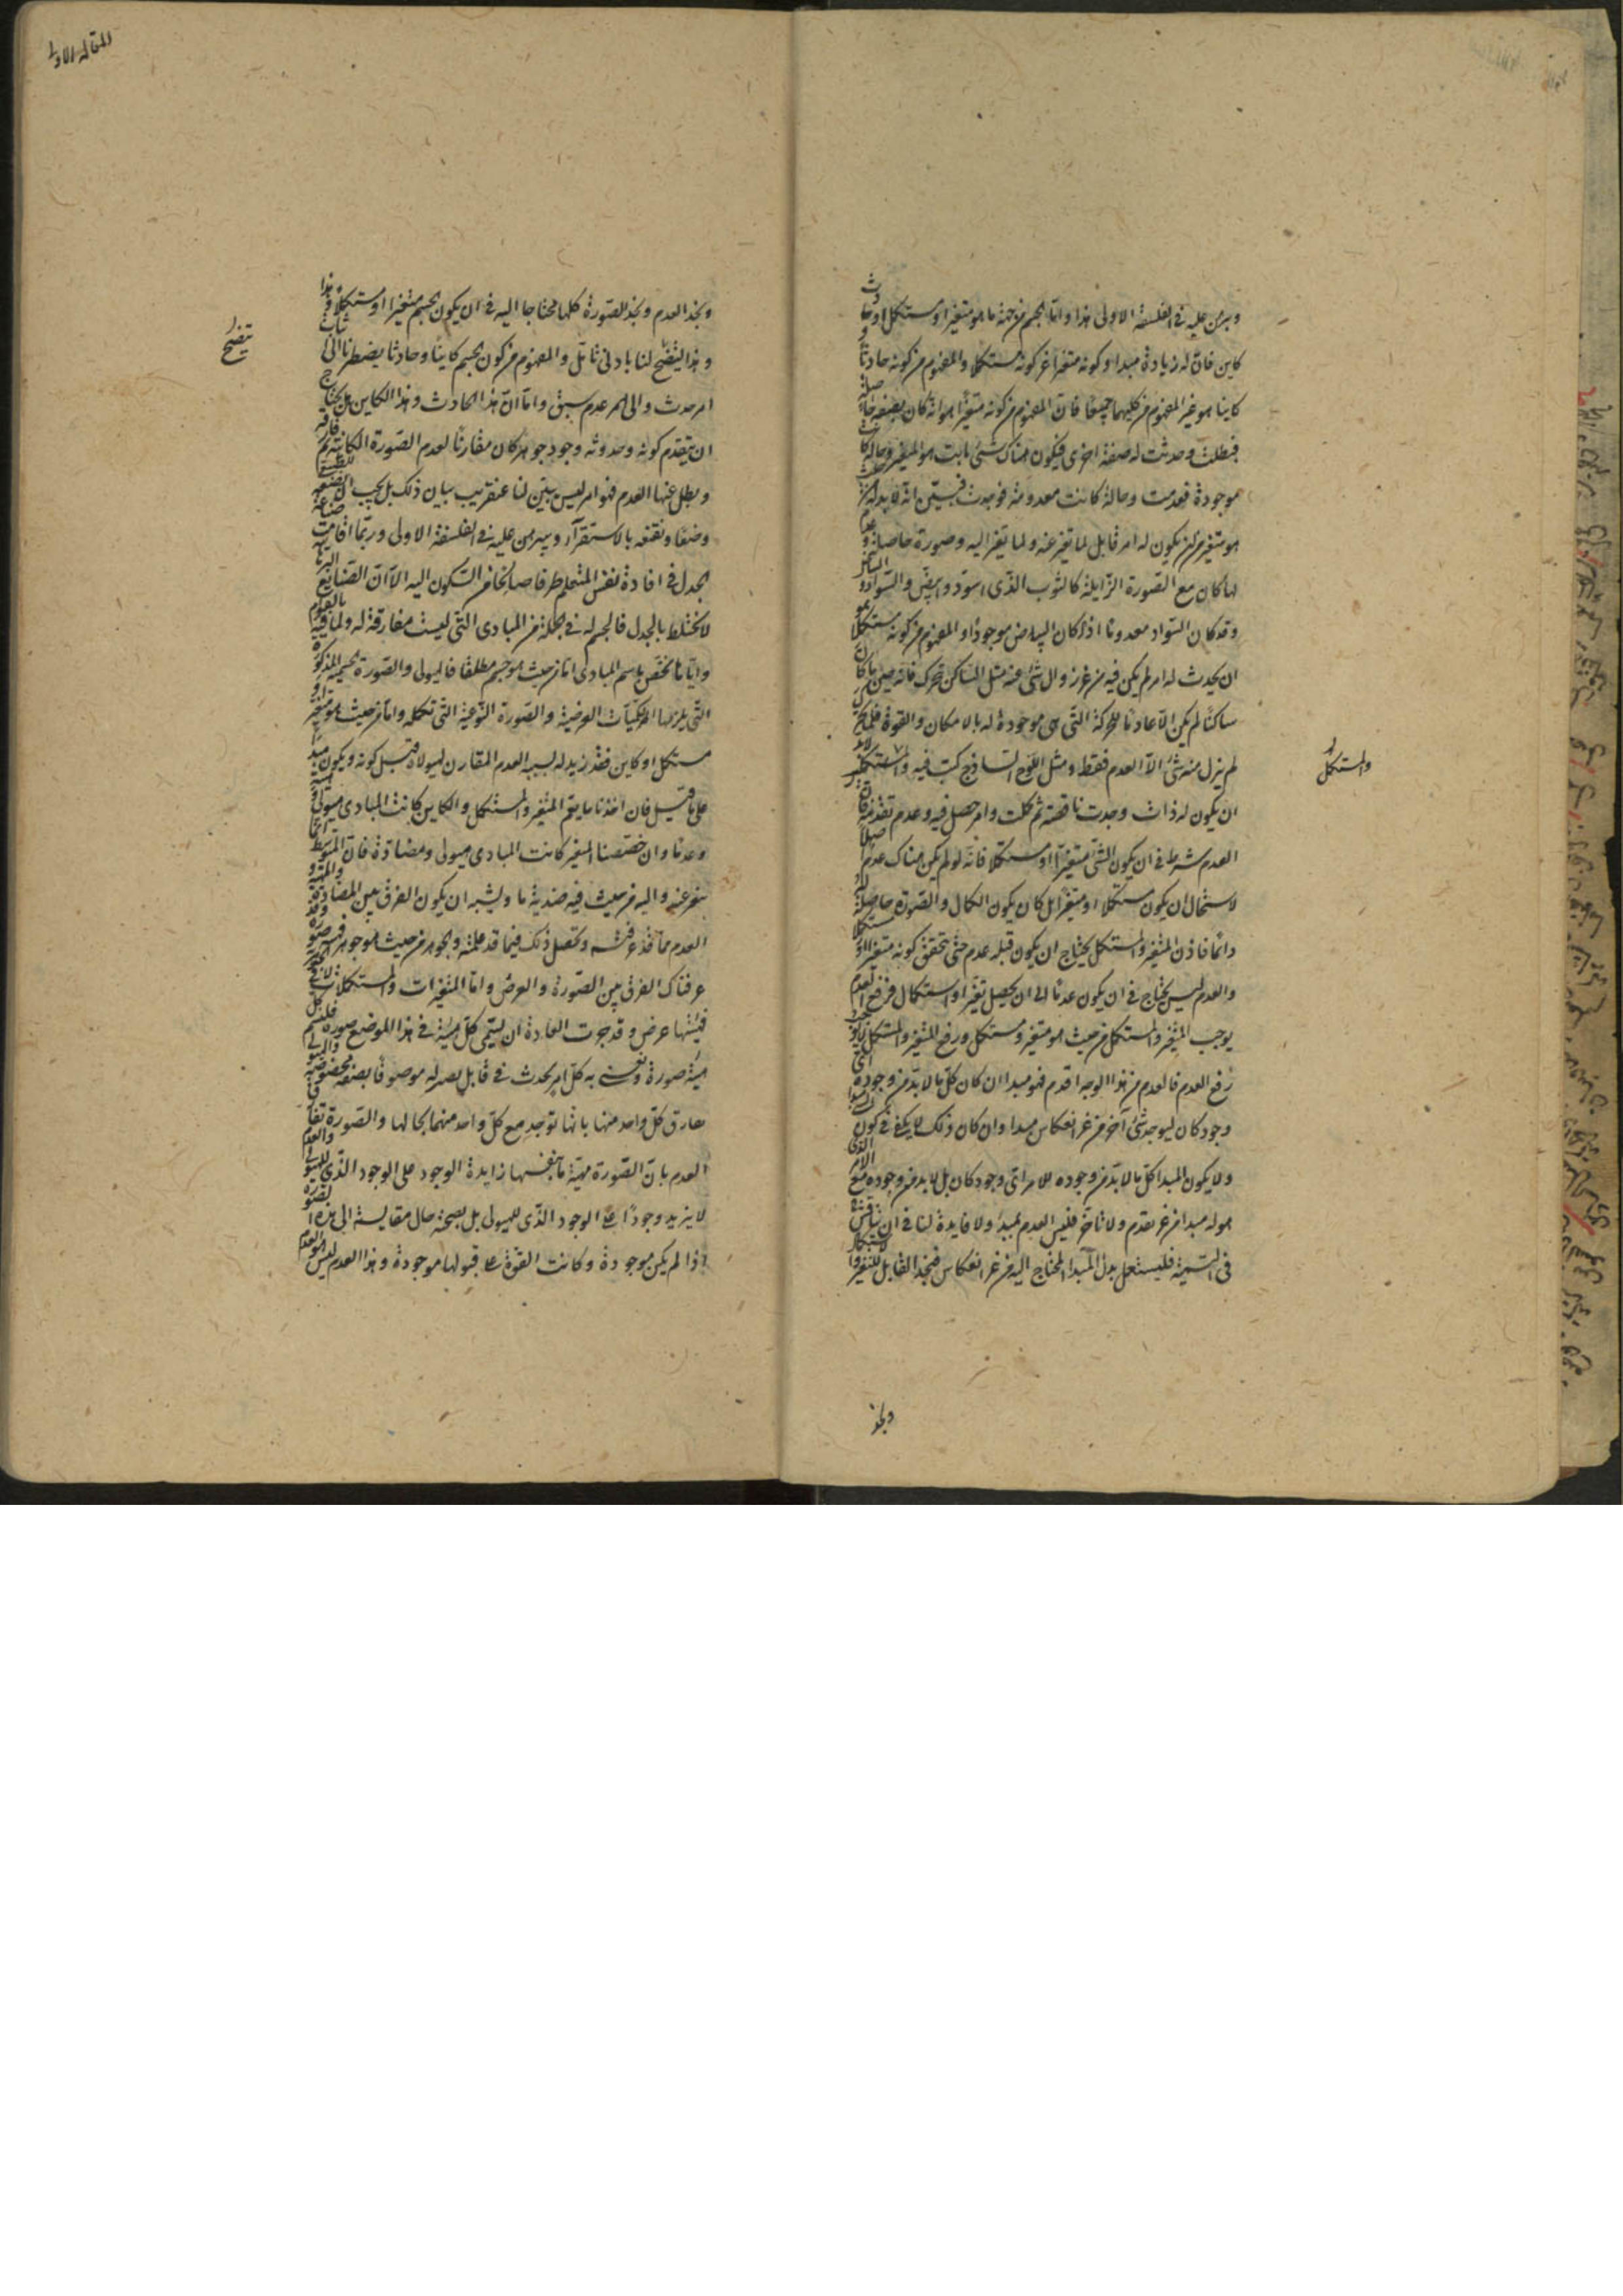 ويبرهن عليه فى الفلسفة الاولى هذا واما الجسم من جهة ما هو متغير او مستكمل او حادث
كاين فان له زيادة مبدا وكونه متغيرا غير كونه مستكملا والمفهوم من كونه حادثا و
كاينا هو غير المفهوم من كليهما جميعا فان المفهوم من كونه متغيرا هو انه كان بصفة حاصلة
فبطلت وحدثت له صفة اخرى فيكون هناك شئ ثابت هو المتغير وحالة كانت
موجودة فعدمت وحالة كانت معدومة فوجدت فبين انه لا بد له من حيث
هو متغير من ان يكون له امر قابل لما تغير عنه ولما تغير اليه وصورة حاصلة وعدم
لها كان مع الصورة الزايلة كالثوب الذى اسود والبياض والسواد
وقد كان السواد معدوما اذ كان البياض موجودا والمفهوم من كونه مستكملا هو
ان يحدث له امر لم يكن فيه من غير زوال شئ عنه مثل الساكن يتحرك فانه حين ما كان
ساكنا لم يكن الا عادما للحركة التى هى موجودة له بالامكان والقوة فلما تحرك
لم يزل منه شئ الا العدم فقط ومثل اللوح الساذج كتب فيه والمستكمل لا بد
ان يكون له ذات وجدت ناقصة ثم كملت وامر حصل فيه وعدم تقدمه فان
العدم شرط فى ان يكون الشئ متغيرا او مستكملا فانه لو لم يكن هناك عدم اصلا
لاستحال ان يكون مستكملا او متغيرا بل كان يكون الكمال والصورة حاصلة له
دائما فاذن المتغير والمستكمل يحتاج ان يكون قبله عدم حتى يتحقق كونه متغيرا او مستكملا
والعدم ليس يحتاج فى ان يكون عدما الى ان يحصل تغير او استكمال فرفع العدم
يوجب رفع المتغير والمستكمل من حيث هو متغير ومستكمل ورفع المتغير والمستكمل لا يوجب
رفع العدم فالعدم من هذا الوجه اقدم فهو مبدا ان كان كل ما لا بد من وجوده
وجود كان ليوجد شئ آخر من غير انعكاس مبدا وان كان ذلك لا يكفى فى كون الشئ مبدا
ولا يكون المبدا كل ما لا بد من وجوده للامر اى وجود كان بل لا بد من وجوده مع الامر الذى
هو له مبدا من غير تقدم ولا تاخر فليس العدم بمبدا ولا فايدة لنا فى ان نناقش
فى التسمية فليستعمل بدل المبدا المحتاج اليه من غير انعكاس فنجد القابل للتغير والاستكمال
ونجد
والمستكمل
المقالة الاولى
ونجد العدم ونجد الصورة كلها محتاجا اليه فى ان يكون الجسم متغيرا او مستكملا وهذا
وهذا يتضح لنا بادنى تامل والمفهوم من كون الجسم كاينا وحادثا يضطرنا الى اثبات
امر حدث والى عدم سبق واما ان هذا الحادث وهذا الكاين هل يحتاج
ان يتقدم كونه وحدوثه وجود جوهر كان مقارنا لعدم الصورة الكاينة ثم فارقه
وبطل عنها العدم فهو امر ليس بين لنا عن قريب بيان ذلك بل يجب ان نضعه للطبيعى
وضعا ونقنعه بالاستقراء ويبرهن عليه فى الفلسفة الاولى وربما اقامت صناعة
الجدل فى افادة نفس المتعلم طرفا صالحا من السكون اليه الا ان الصنايع البرهانية
لا تختلط بالجدل فالجسم له فى الجملة من المبادى التى ليست مفارقة له ولما فيه بالقوام
واياها نخص باسم المبادى اما من حيث هو جسم مطلقا فالهيولى والصورة الجسمية المذكورة
التى يلزمها الكميات العرضية والصورة النوعية التى تكمله واما من حيث هو متغير او
مستكمل او كاين فقد زيد له نسبة العدم المقارن لهيولاه قبل كونه ويكون مبدا
على ما قيل فان اخذنا ما يعم المتغير والمستكمل والكاين كانت المبادى هيولى وهيئة
وعدما وان خصصنا المتغير كانت المبادى هيولى ومضادة فان المتوسط انما
يتغير عنه واليه من حيث فيه ضدية ما ويشبه ان يكون الفرق بين المضادة والهيئة و
العدم مما قد عرفته وتحصل ذلك فيما قد علمته والجوهر من حيث هو جوهر فهيئته صورة وقد
عرفناك الفرق بين الصورة والعرض واما المتغيرات والمستكملات لا فى الجوهر
فهيئتها عرض وقد جرت العادة ان تسمى كل هيئة فى هذا الموضع صورة فلنسم كل
هيئة صورة ونعنى به كل امر يحدث فى قابل يصير له موصوفا بصفة مخصوصة والهيولى
تفارق كل واحد منهما بانها توجد مع كل واحد منهما بحالها والصورة تفارق
العدم بان الصورة مهية ما بنفسها زايدة الوجود على الوجود الذى للهيولى والعدم
لا يزيد وجودا على الوجود الذى للهيولى بل يصحبه حال مقايسة الى هذه الصورة
اذا لم يكن موجودة وكانت القوة على قبولها موجودة وهذا العدم ليس هو العدم
يتضح